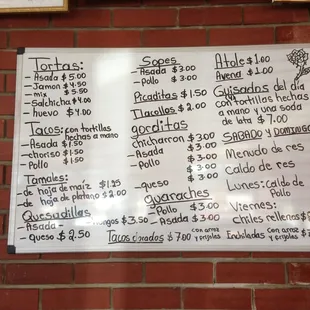 Tortas:
-Asada $5.00
-Jamon $4.50
-mix $5.50
-Salchicha $4.00
-huevo $4.00
Tacos: con tortillas hechas a mano
-Asada $1.50
-choriso $1.50
-Pollo $1.50
Tamales:
-de hoja de maiz $1.25
-de hoja de platano $2.00
Quesudillas
-Asada-
-queso $2.50
Sopes
-Asada $3.00
-Pollo $3.00
Picaditas $1.50
Tlacollos $2.00
gorditas
chicharron $3.00
-Asada $3.00
-Pollo $3.00
-queso $3.00
guaraches
-Pollo $3.00
-Asada $3.00
$3.50
Tacos dorados $7.00 con arroz y frijoles
Atole $1.00
Avena $1.00
Guisados del día
con tortillas hechas
a mano y una soda
de lata $7.00
SABADO y DOMINGO
Menudo de res
Caldo de res
Lunes: Caldo de
Pollo
Viernes:
chiles rellenos
Enchiladas con arroz y frijoles